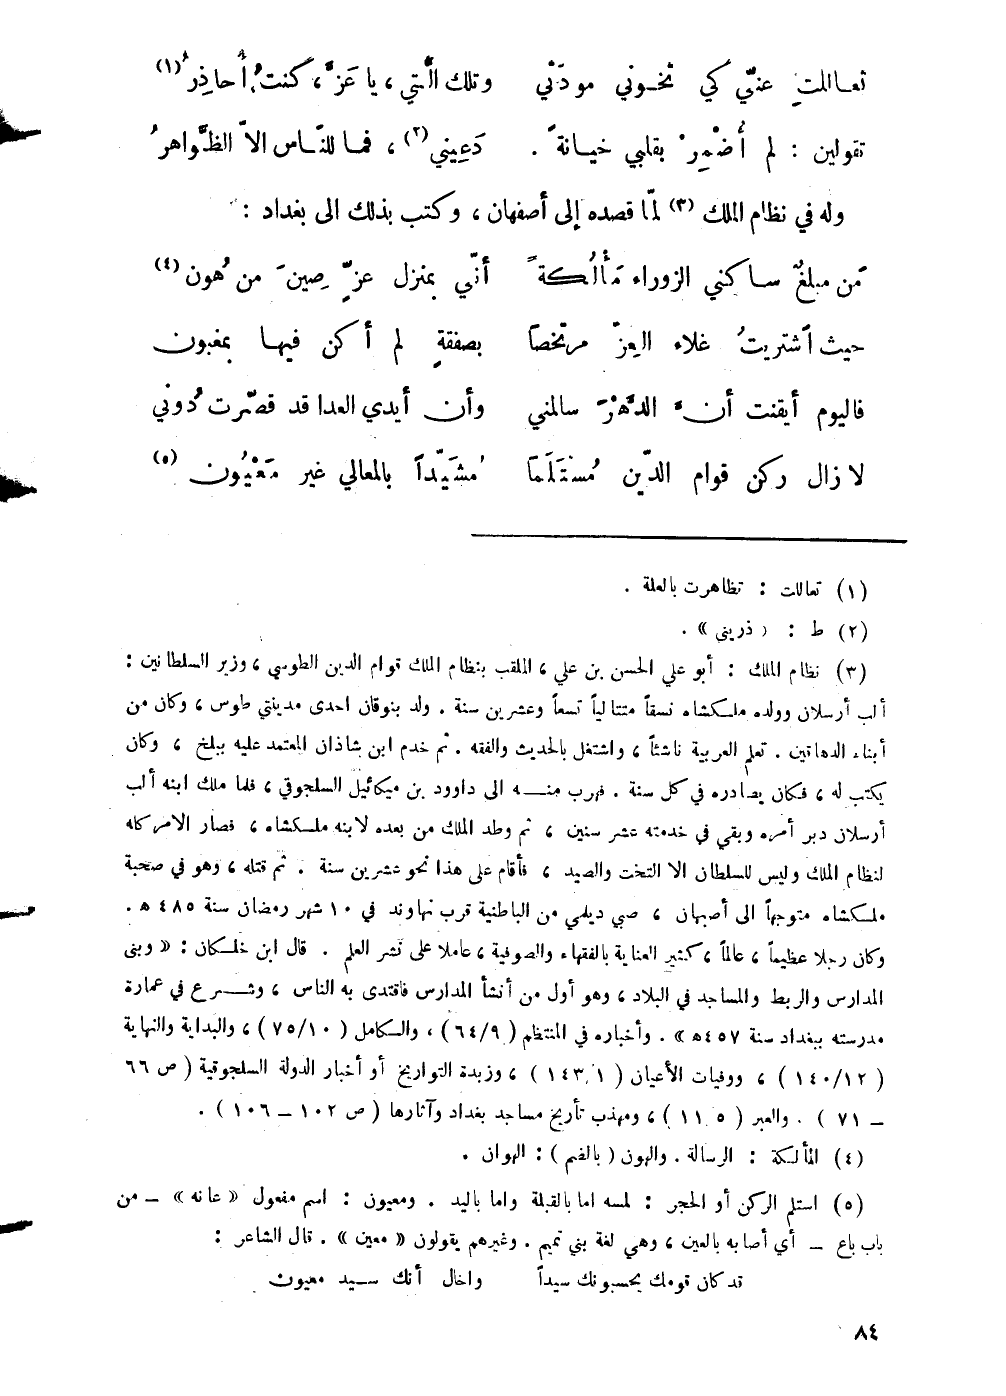 تعاللتِ عنّي كي تخوني مودّتي وتلك الّتي ، يا عَزَّ ، كنتُ أُحاذِرُ (١)
تقولين : لم أُضْمِرْ بقلبي خيانةً . دَعِيني (٢) ، فما للنّاس الاّ الظَّواهرُ
وله في نظام الملك (٣) لمّا قصده إلى أصفهان ، وكتب بذلك الى بغداد :
مَن مبلغٌ ساكني الزوراء مَأْلُكةً أنّي بمنزل عزٍّ صِينَ من هُون (٤)
حيث اشتريتُ غلاء العِزّ مرتخصاً بصفقةٍ لم أكن فيها بمغبون
فاليوم أيقنت أنّ الدَّهْرَ سالمني وأن أيدي العدا قد قصّرت دُوني
لا زال ركن قوام الدّين مُستَلَماً مُشَيّداً بالمعالي غير مَعْيُون (٥)
(١) تعاللت : تظاهرت بالعلة .
(٢) ط : « ذريني » .
(٣) نظام الملك : أبو علي الحسن بن علي ، الملقب بنظام الملك قوام الدين الطوسي ، وزير السلطانين :
ألب أرسلان وولده ملكشاه نسقاً متتالياً تسعاً وعشرين سنة . ولد بنوقان احدى مدينتي طوس ، وكان من
أبناء الدهاتين . تعلم العربية ناشئاً ، واشتغل بالحديث والفقه . ثم خدم ابن شاذان المعتمد عليه ببلخ ، وكان
يكتب له ، فكان يصادره في كل سنة . فهرب منه الى داوود بن ميكائيل السلجوقي ، فلما ملك ابنه ألب
أرسلان دبر أمره وبقي في خدمته عشر سنين ، ثم وطد الملك من بعده لابنه ملكشاه ، فصار الامر كله
لنظام الملك وليس للسلطان الا التخت والصيد ، فأقام على هذا نحو عشرين سنة . ثم قتله ، وهو في صحبة
ملكشاه متوجهاً الى أصبهان ، صبي ديلمي من الباطنية قرب نهاوند في ١٠ شهر رمضان سنة ٤٨٥ هـ .
وكان رجلا عظيماً ، عالماً ، كثير العناية بالفقهاء والصوفية ، عاملا على نشر العلم . قال ابن خلكان : « وبنى
المدارس والربط والمساجد في البلاد ، وهو أول من أنشأ المدارس فاقتدى به الناس ، وشرع في عمارة
مدرسته ببغداد سنة ٤٥٧هـ » . وأخباره في المنتظم ( ٦٤/٩ ) ، والكامل ( ٧٥/١٠ ) ، والبداية والنهاية
( ١٤٠/١٢ ) ، ووفيات الأعيان ( ١٤٣/١ ) ، وزبدة التواريخ أو أخبار الدولة السلجوقية ( ص ٦٦
ـ ٧١ ) . والعبر ( ) ، ومهذب تأريخ مساجد بغداد وآثارها ( ص ١٠٢ ـ ١٠٦ ) .
(٤) المألكة : الرسالة . والهون ( بالضم ) : الهوان .
(٥) استلم الركن أو الحجر : لمسه اما بالقبلة واما باليد . ومعيون : اسم مفعول « عانه » ـ من
باب باع ـ أي أصابه بالعين ، وهي لغة بني تميم . وغيرهم يقولون « معين » . قال الشاعر :
قد كان قومك يحسبونك سيداً واخال أنك سيد معيون
٨٤